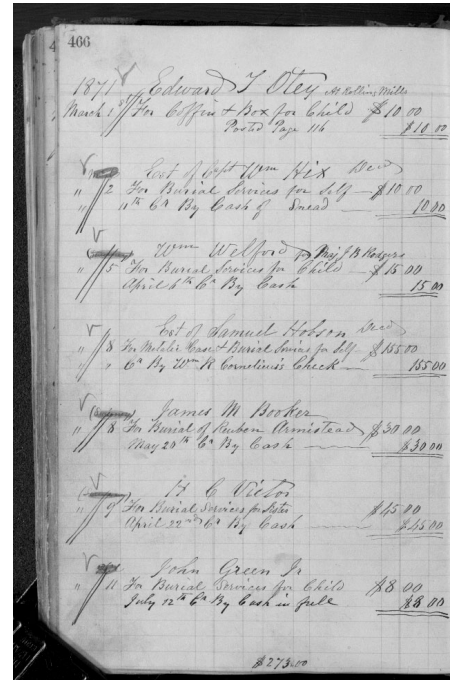 466
1871 Edward T Otey At Rolling Mills
March 2 For Coffin & Box for Child $10 00
Posted Page 116 $10 00
Est of Capt Wm Hix Decd
" 2 For Burial Services for Self $10 00
" 11th Cr By Cash of Snead 10 00
Wm Welford for Maj J B Rodgers
" 5 For Burial Services for Child $15 00
April 6th Cr By Cash 15 00
Est of Samuel Hobson Decd
" 8 For Metalic Case & Burial Services for Self $155 00
" " Cr By Wm R Cornelius's Check 155 00
James M Booker
" 8 For Burial of Reuben Armistead $30 00
May 20th Cr By Cash $30 00
H C Victor
" 9 For Burial Services for Sister $45 00
April 22nd Cr By Cash $45 00
John Green Jr
" 11 For Burial Services for Child $8 00
July 12th Cr By Cash in full $8 00
$273.00